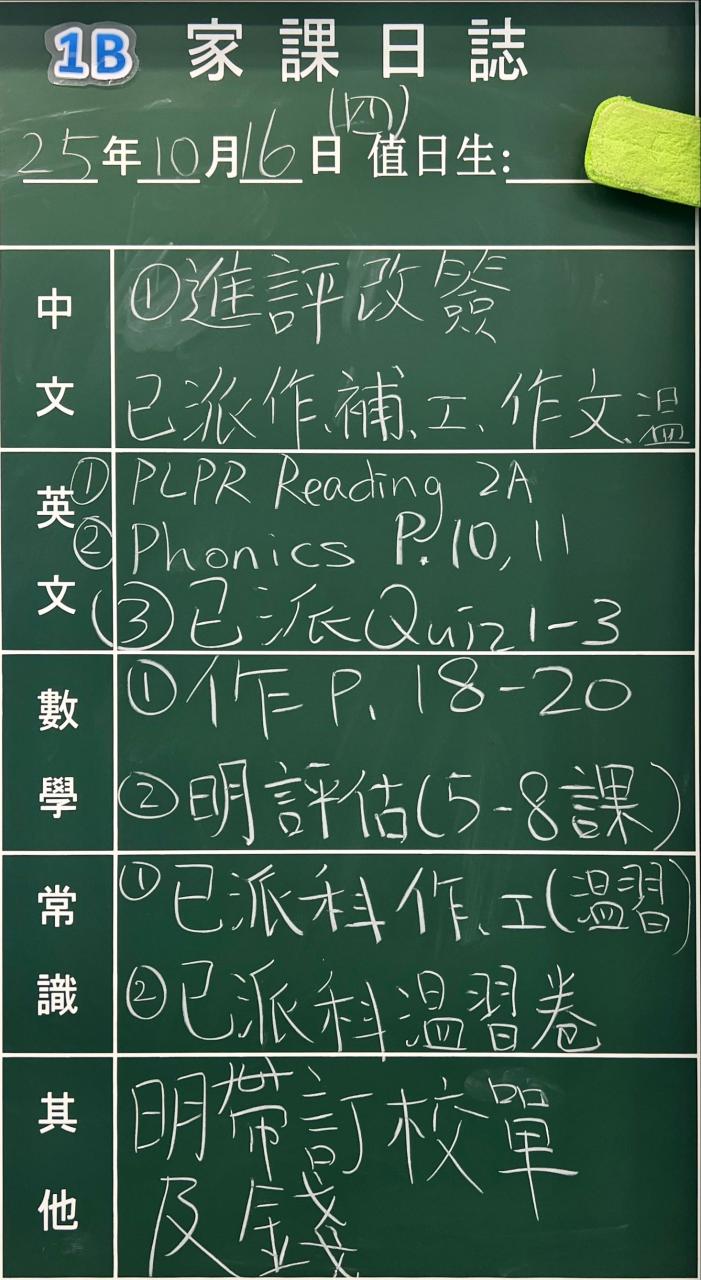 1B 家課日誌
(四)
25年10月16日 值日生:
中文
①進評改簽
已派作、補、工、作文、溫
英文
①PLPR Reading 2A
②Phonics P.10,11
(③已派Quiz1-3
數學
①作P.18-20
②明評估(5-8課)
常識
①已派科作、工(溫習)
②已派科溫習卷
其他
明帶訂校單
及錢